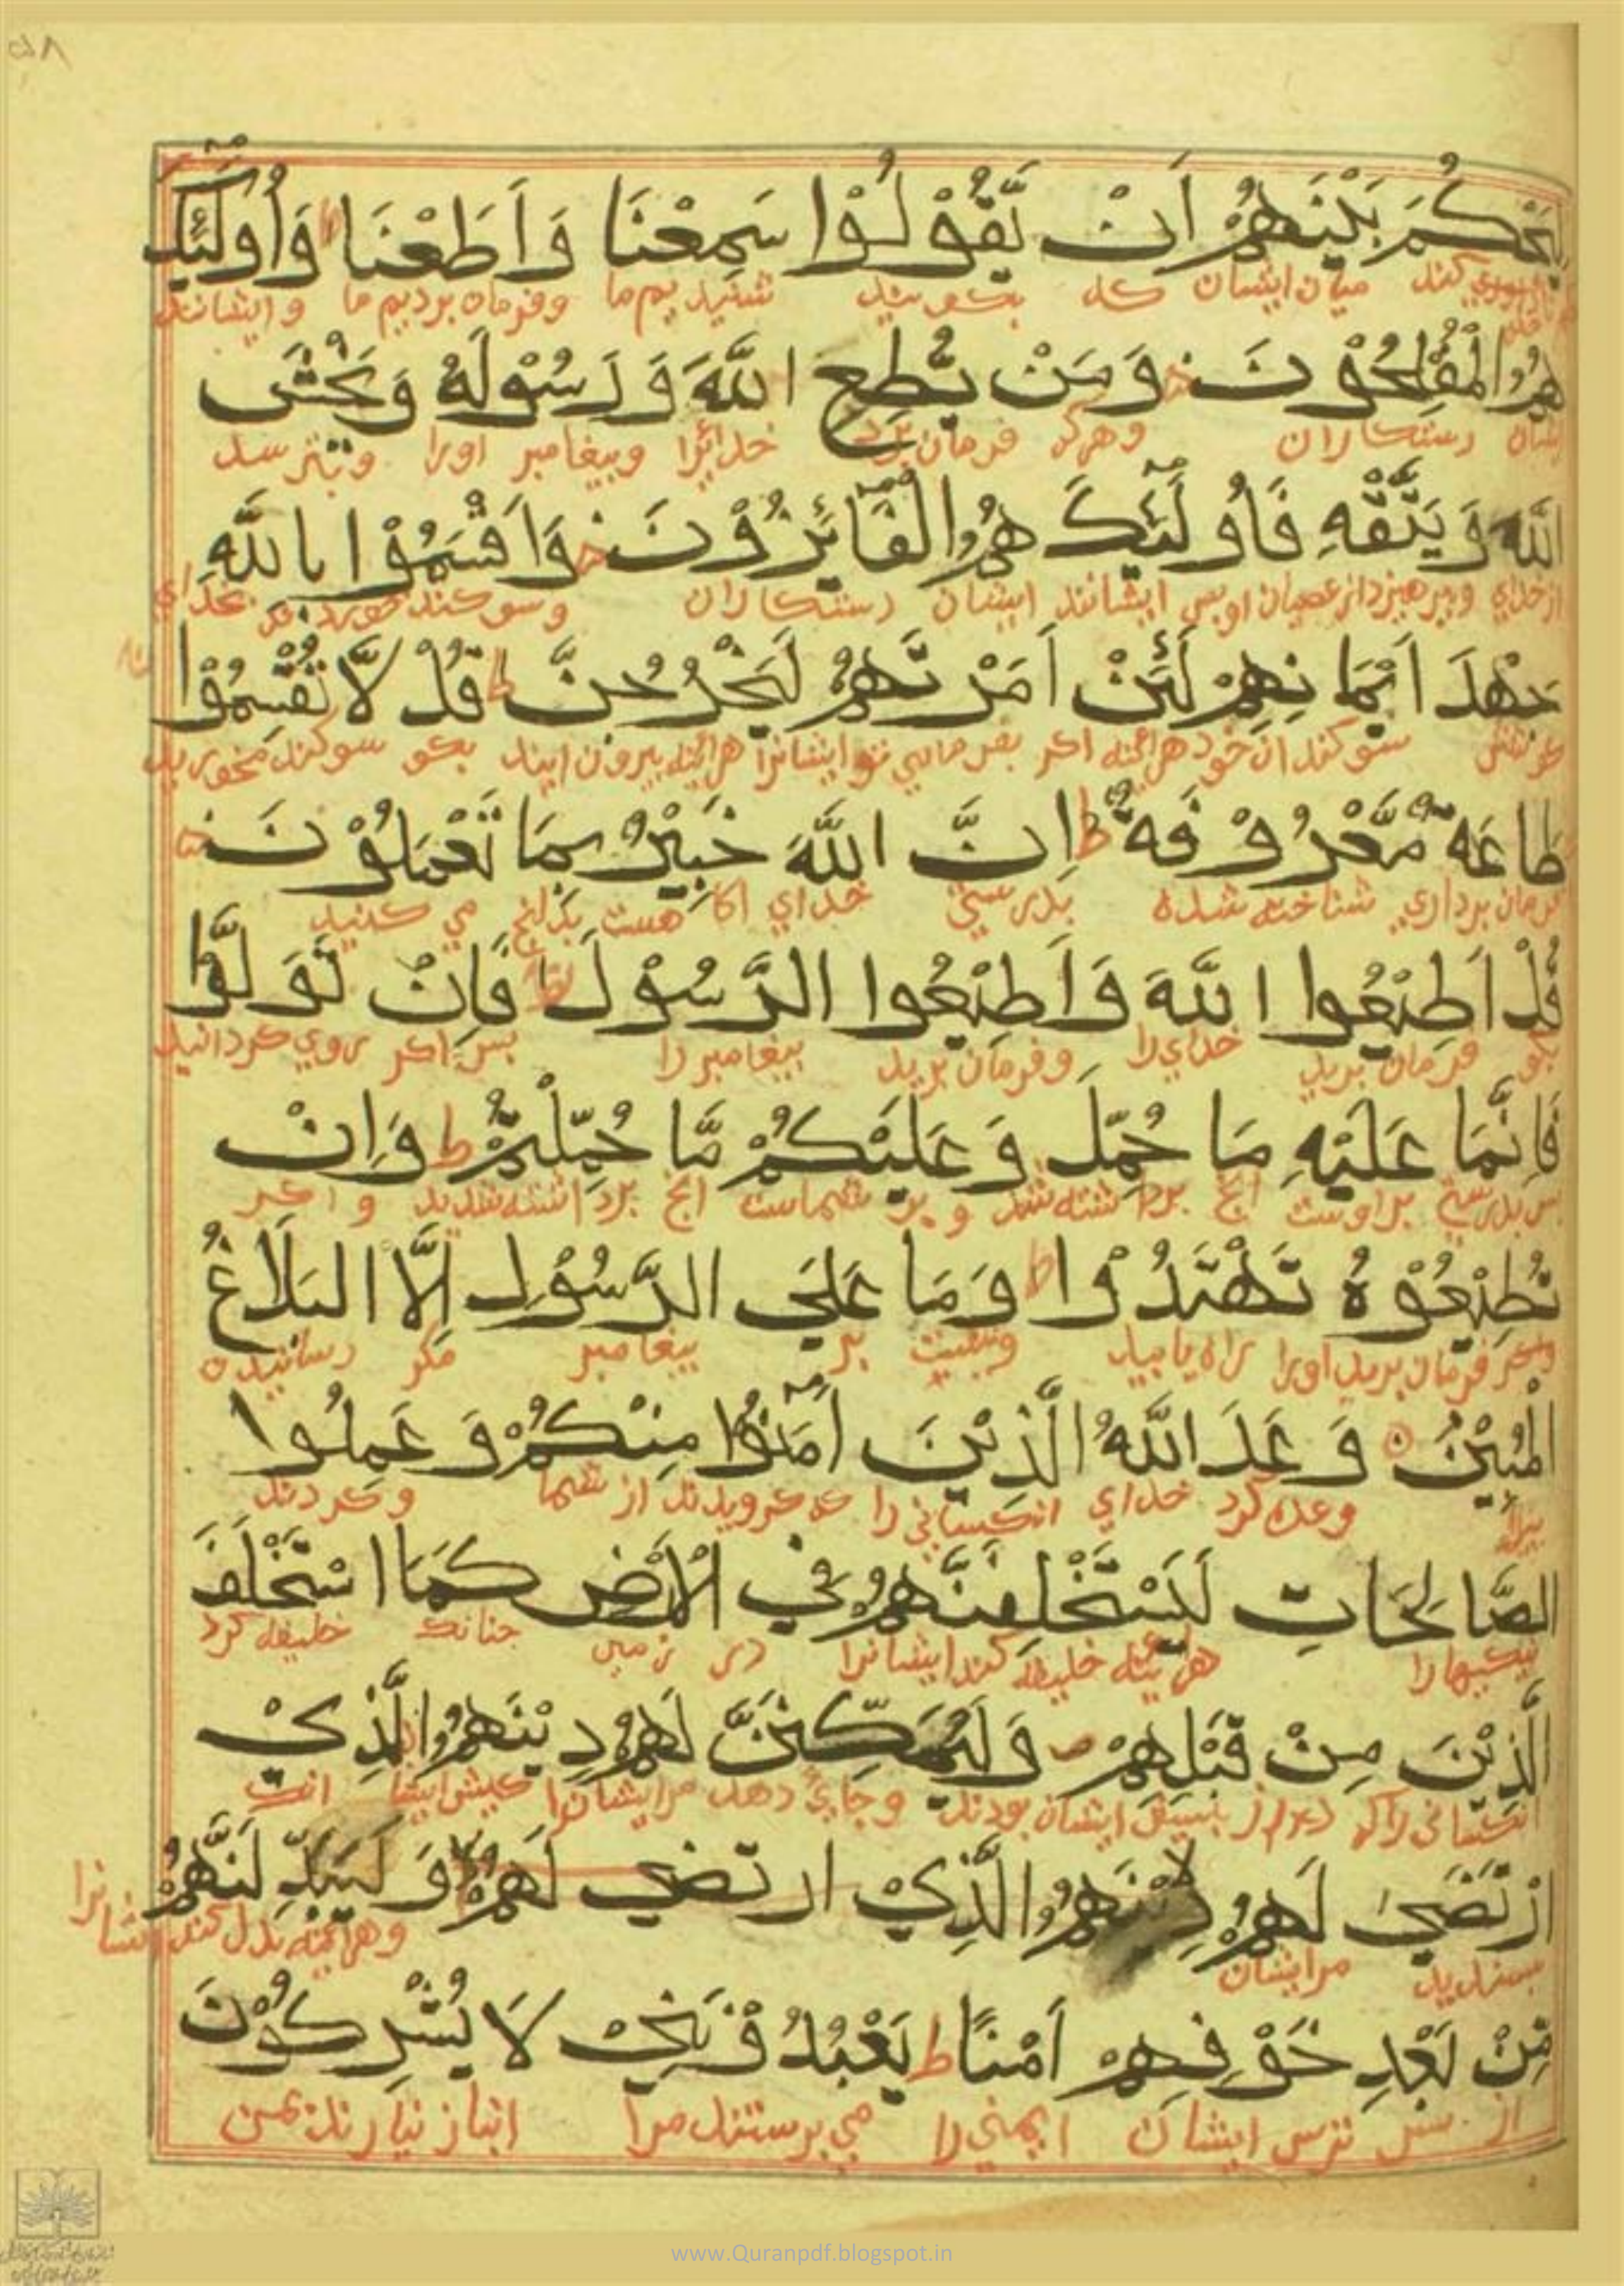 لِيَحْكُمَ بَيْنَهُمْ اَنْ يَّقُوْلُوْا سَمِعْنَا وَاَطَعْنَا ط وَاُولٰٓئِكَ
میان ایشان که بگویند شنیدیم ما و فرمان بردیم ما و ایشانند
هُمُ الْمُفْلِحُوْنَ وَمَنْ يُّطِعِ اللّٰهَ وَرَسُوْلَهُ وَيَخْشَى
ایشان رستکاران وهرکه فرمان برد خدایرا وپیغامبر اورا وبترسد
اللّٰهَ وَيَتَّقْهِ فَاُولٰٓئِكَ هُمُ الْفَآئِزُوْنَ وَاَقْسَمُوْا بِاللّٰهِ
از خدای وپرهیزد از عصیان او پس ایشانند ایشان رستکاران وسوکند خوردند بخدای
جَهْدَ اَيْمَانِهِمْ لَئِنْ اَمَرْتَهُمْ لَيَخْرُجُنَّ ط قُلْ لَّا تُقْسِمُوْا
سوکندان خود هرآئنه اکر بفرمایی تو ایشانرا هرآئنه بیرون ایند بکو سوکند مخورید
طَاعَةٌ مَّعْرُوْفَةٌ ط اِنَّ اللّٰهَ خَبِيْرٌ بِمَا تَعْمَلُوْنَ
فرمان برداری شناخته شده بدرستی خدای اکاهست بدانچ می کنید
قُلْ اَطِيْعُوا اللّٰهَ وَاَطِيْعُوا الرَّسُوْلَ فَاِنْ تَوَلَّوْا
بکو فرمان برید خدای را وفرمان برید پیغامبر را پس اکر روی کردانید
فَاِنَّمَا عَلَيْهِ مَا حُمِّلَ وَعَلَيْكُمْ مَّا حُمِّلْتُمْ ط وَاِنْ
پس بدرستی براوست انچ برداشته شد و بر شماست انچ برداشته شدید و اکر
تُطِيْعُوْهُ تَهْتَدُوْا ط وَمَا عَلَى الرَّسُوْلِ اِلَّا الْبَلَاغُ
فرمان برید اورا راه یابید ونیست بر پیغامبر مکر رسانیدن
الْمُبِيْنُ وَعَدَ اللّٰهُ الَّذِيْنَ اٰمَنُوْا مِنْكُمْ وَعَمِلُوا
وعده کرد خدای انکسانی را که کرویدند از شما وکردند
الصَّالِحَاتِ لَيَسْتَخْلِفَنَّهُمْ فِي الْاَرْضِ كَمَا اسْتَخْلَفَ
نیکیها را هرآئنه خلیفه کند ایشانرا در زمین چنانک خلیفه کرد
الَّذِيْنَ مِنْ قَبْلِهِمْ ص وَلَيُمَكِّنَنَّ لَهُمْ دِيْنَهُمُ الَّذِيْ
انکسانی را که از پیش ایشان بودند وجای دهد مرایشانرا کیش ایشا انک
ارْتَضٰى لَهُمْ دِيْنَهُمُ الَّذِيْ ارتضي لَهُمْ وَلَيُبَدِّلَنَّهُمْ
پسندید مرایشان وهرآئنه بدل کند ایشانرا
مِّنْ بَعْدِ خَوْفِهِمْ اَمْنًا ط يَعْبُدُوْنَنِيْ لَا يُشْرِكُوْنَ
از پس ترس ایشان ایمنی را می پرستند مرا انباز نیارند بمن
www.Quranpdf.blogspot.in